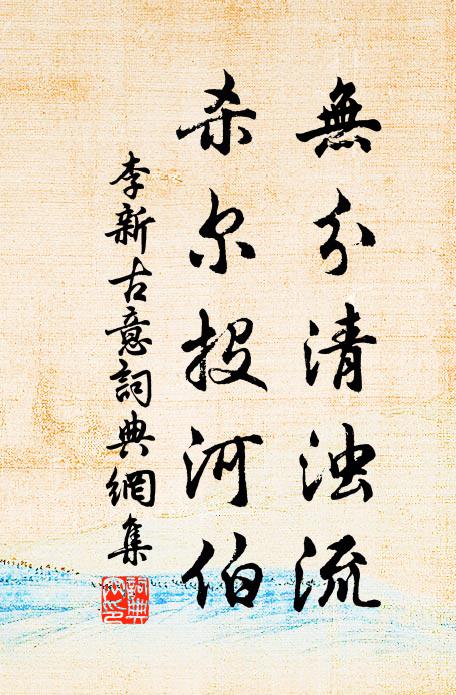 無分清浊流
杀尔投河伯
李新古意詞典網集